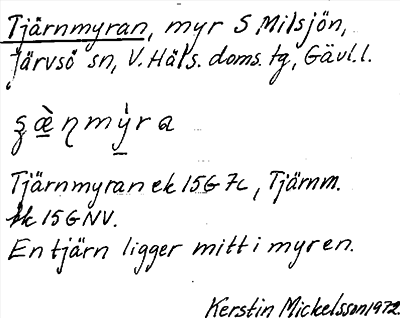 Tjärnmyran, myr S Milsjön,
Järvsö sn, V. Häls. doms. tg, Gävl. l.
ʂæ̀ɳmỳra
Tjärnmyran ek 15G 7c, Tjärnm.
tk 15G NV.
En tjärn ligger mitt i myren.
Kerstin Mickelsson 1972.